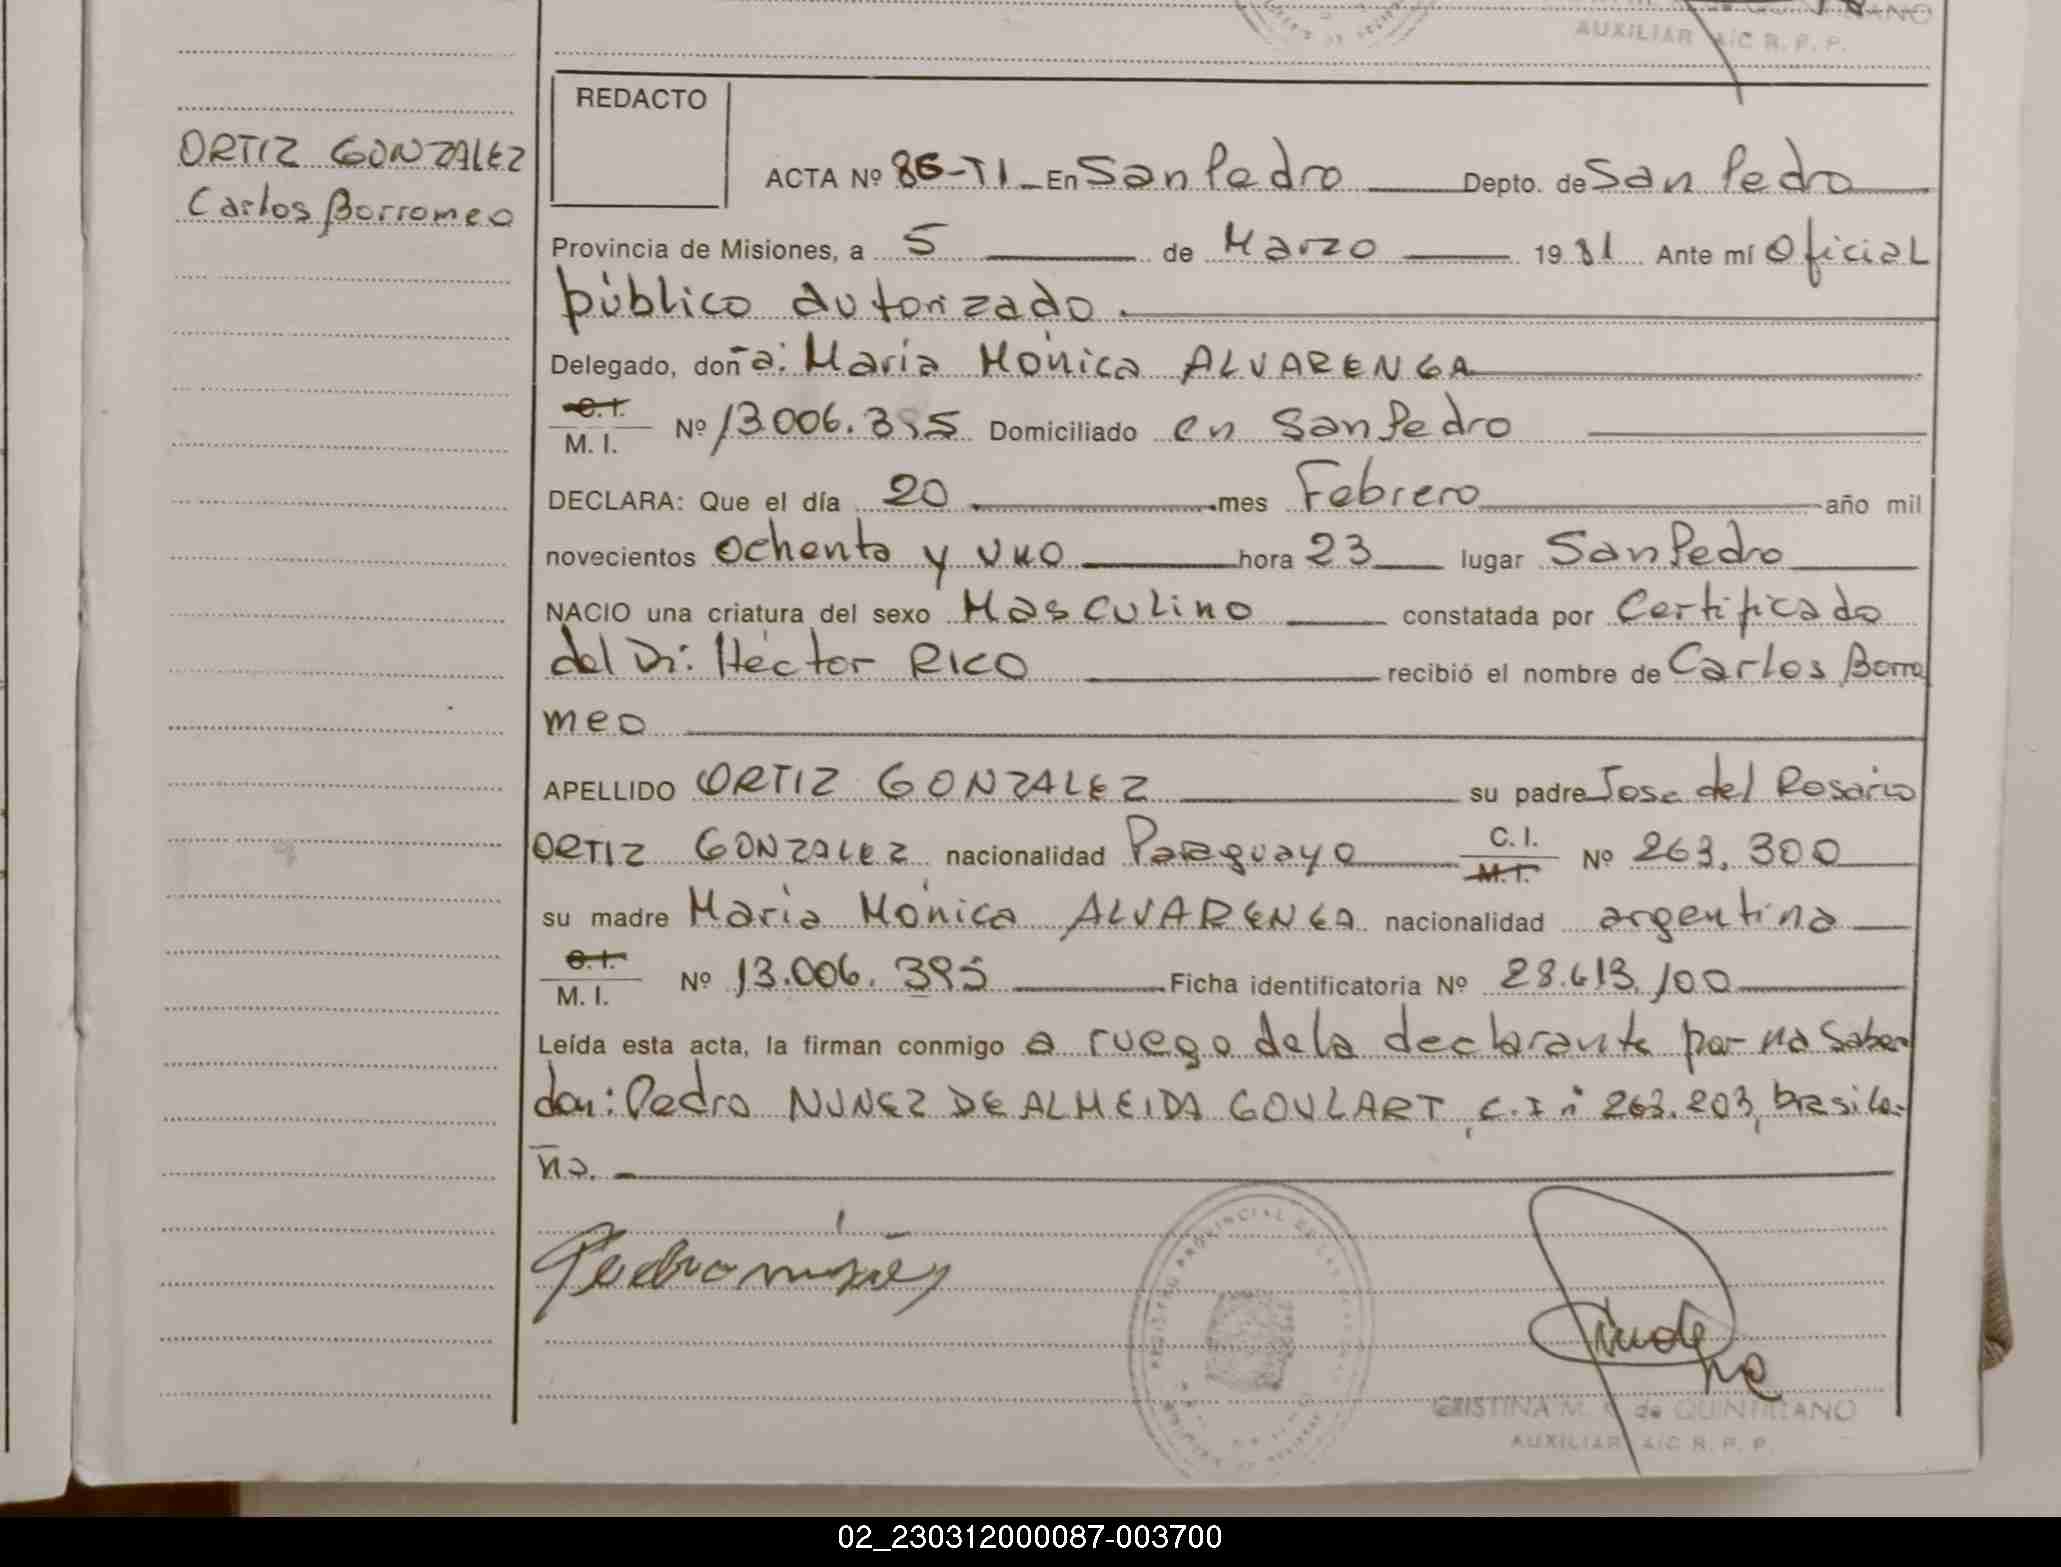 ANO
AUXILIAR A/C R. P. P.
REDACTO
ORTIZ GONZALEZ
Carlos Borromeo
ACTA Nº 86-TI En San Pedro Depto. de San Pedro
Provincia de Misiones, a 5 de Marzo 1981 Ante mí Oficial
público autorizado.
Delegado, doña: María Mónica ALVARENGA
C.I.
M. I. Nº 13.006.395 Domiciliado en San Pedro
DECLARA: Que el día 20 mes Febrero año mil
novecientos ochenta y uno hora 23 lugar San Pedro
NACIO una criatura del sexo Masculino constatada por Certificado
del Dr: Héctor RICO recibió el nombre de Carlos Borro
meo
APELLIDO ORTIZ GONZALEZ su padre Jose del Rosario
ORTIZ GONZALEZ nacionalidad Paraguaya C. I.
M. I. Nº 263.300
su madre María Mónica ALVARENGA nacionalidad argentina
C. I.
M. I. Nº 13.006.395 Ficha identificatoria Nº 28.613/00
Leída esta acta, la firman conmigo a ruego de la declarante por no saber
don: Pedro NUNEZ DE ALMEIDA GOULART, C.I nº 263.203, brasile-
ña.
Pedro nuñes
CRISTINA M. de QUINTITANO
AUXILIAR A/C R. P. P.
02_230312000087-003700